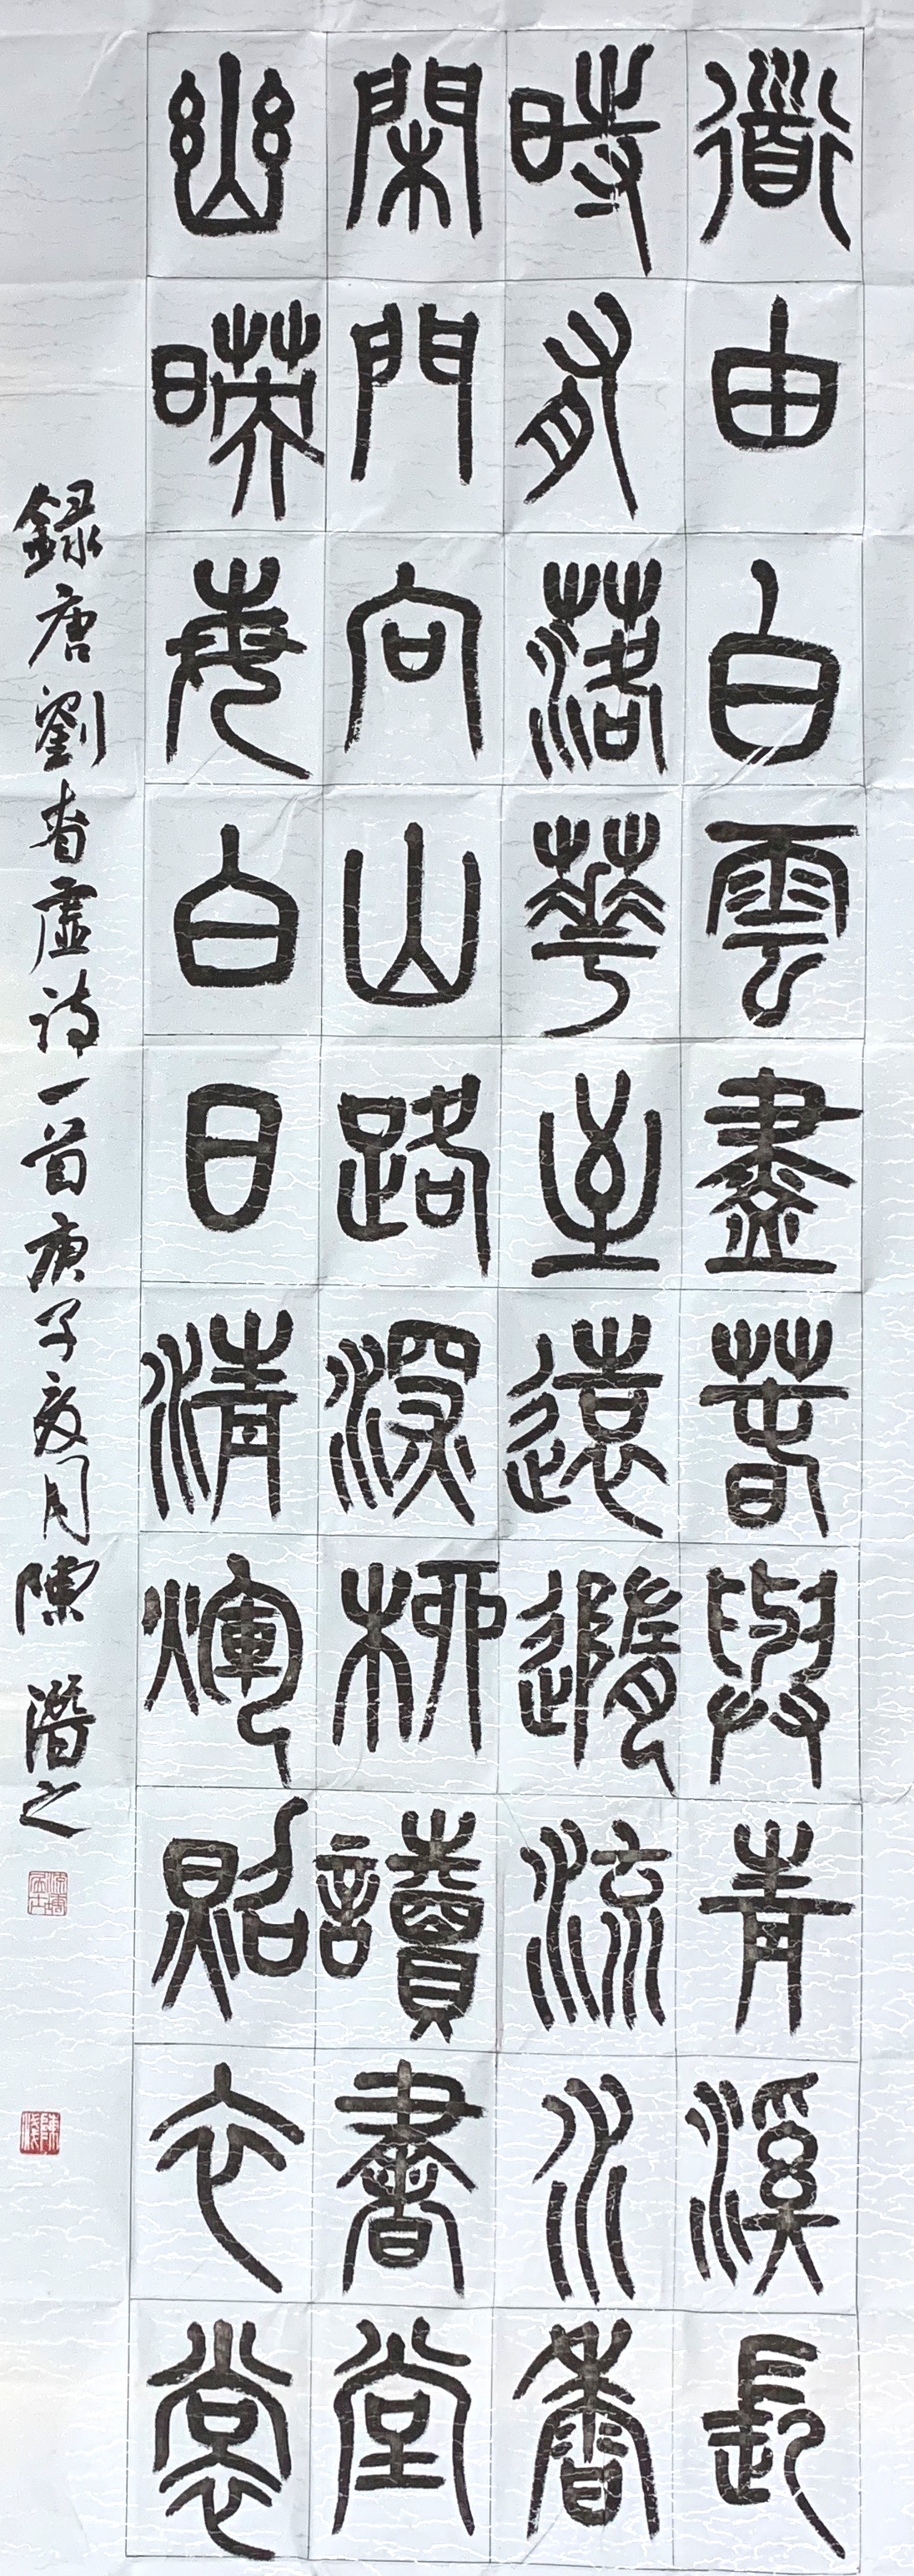 道由白雲盡春與青溪長
時有落華至遠隨流水香
閑門向山路深柳讀書堂
幽暎每白日清輝照衣裳
録唐劉眘虛詩一首庚子夏月陳潛之